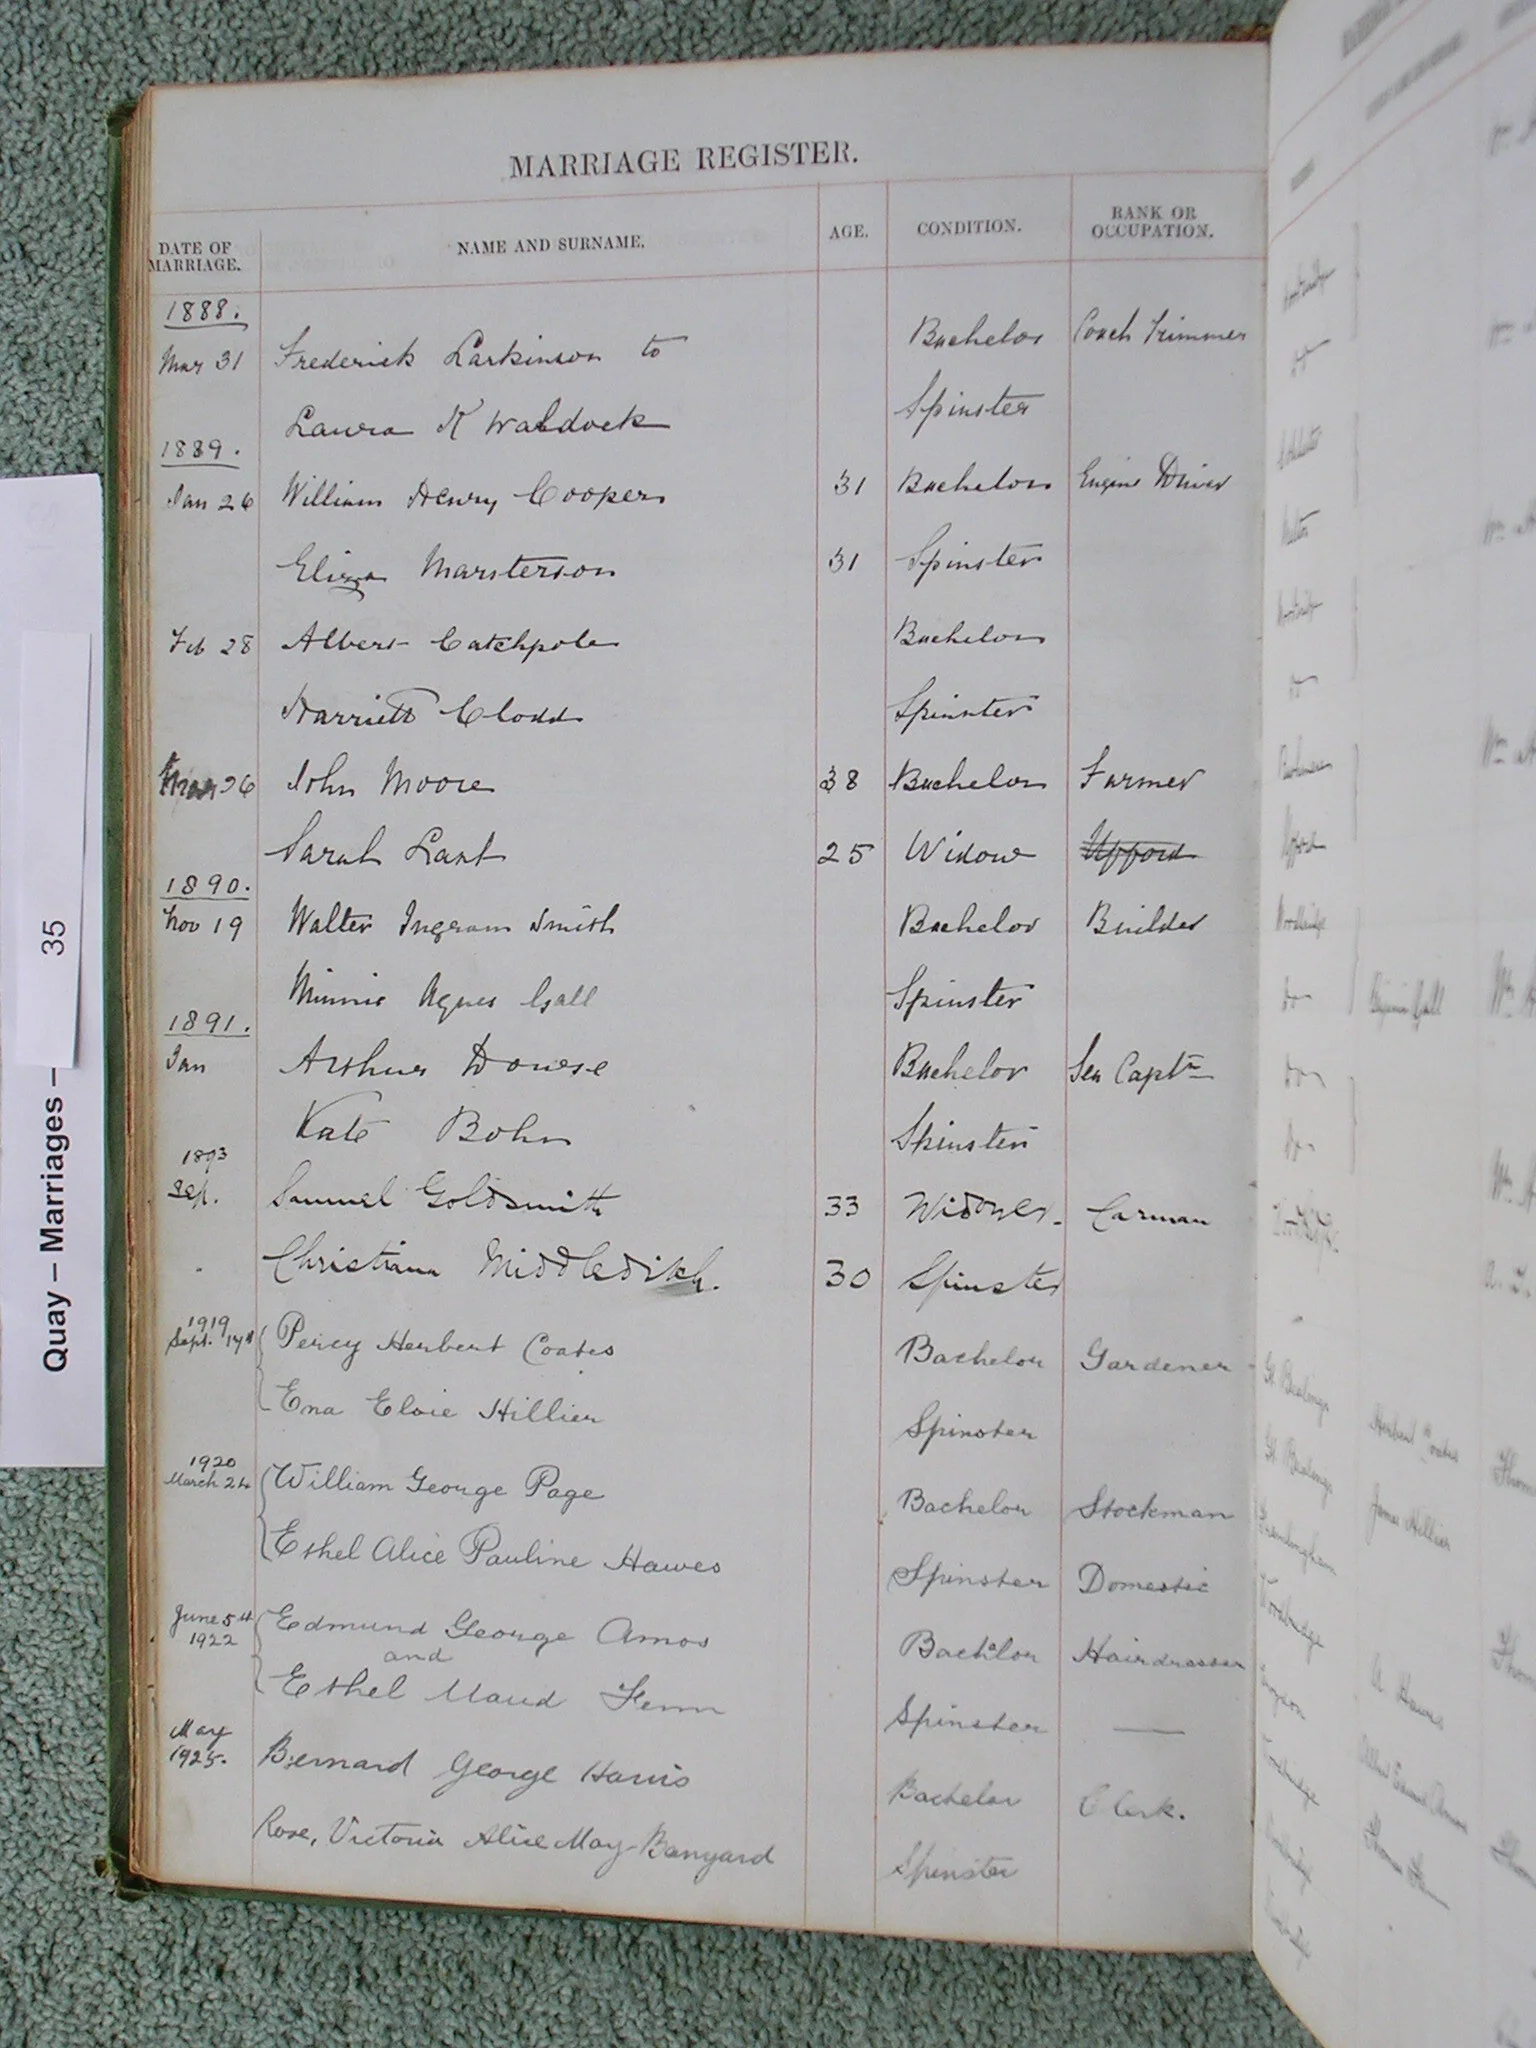 MARRIAGE REGISTER.
DATE OF MARRIAGE. NAME AND SURNAME. AGE. CONDITION. RANK OR OCCUPATION.
1888.
Mar 31 Frederick Larkinson to Bachelor Coach Trimmer
Laura K Waldock Spinster
1889.
Jan 26 William Henry Cooper 31 Bachelor Engine Driver
Eliza Marsterson 31 Spinster
Feb 28 Albert Catchpole Bachelor
Harriett Clodd Spinster
Mar 26 John Moore 38 Bachelor Farmer
Sarah Lant 25 Widow Ufford
1890.
Nov 19 Walter Ingram Smith Bachelor Builder
Minnie Agnes Gall Spinster
1891.
Jan Arthur Dowse Bachelor Sea Captn
Kate Bohn Spinster
1893
Sep. Samuel Goldsmith 33 Widower. Carman
Christiana Middleditch. 30 Spinster
1919
Sept. 17th Percy Herbert Coates Bachelor Gardener
Ena Elsie Hillier Spinster
1920
March 24 William George Page Bachelor Stockman
Ethel Alice Pauline Hawes Spinster Domestic
June 5th 1922 Edmund George Amos Bachelor Hairdresser
and
Ethel Maud Fenn Spinster —
May 1925. Bernard George Harris Bachelor Clerk.
Rose, Victoria Alice May Banyard Spinster
Quay – Marriages – 35
Woodbridge
do
Ufford
Woodbridge
do Benjamin Gall
do
do
Herbert Coates
James Hillier
Framlingham
Woodbridge
A Hawes
Woodbridge